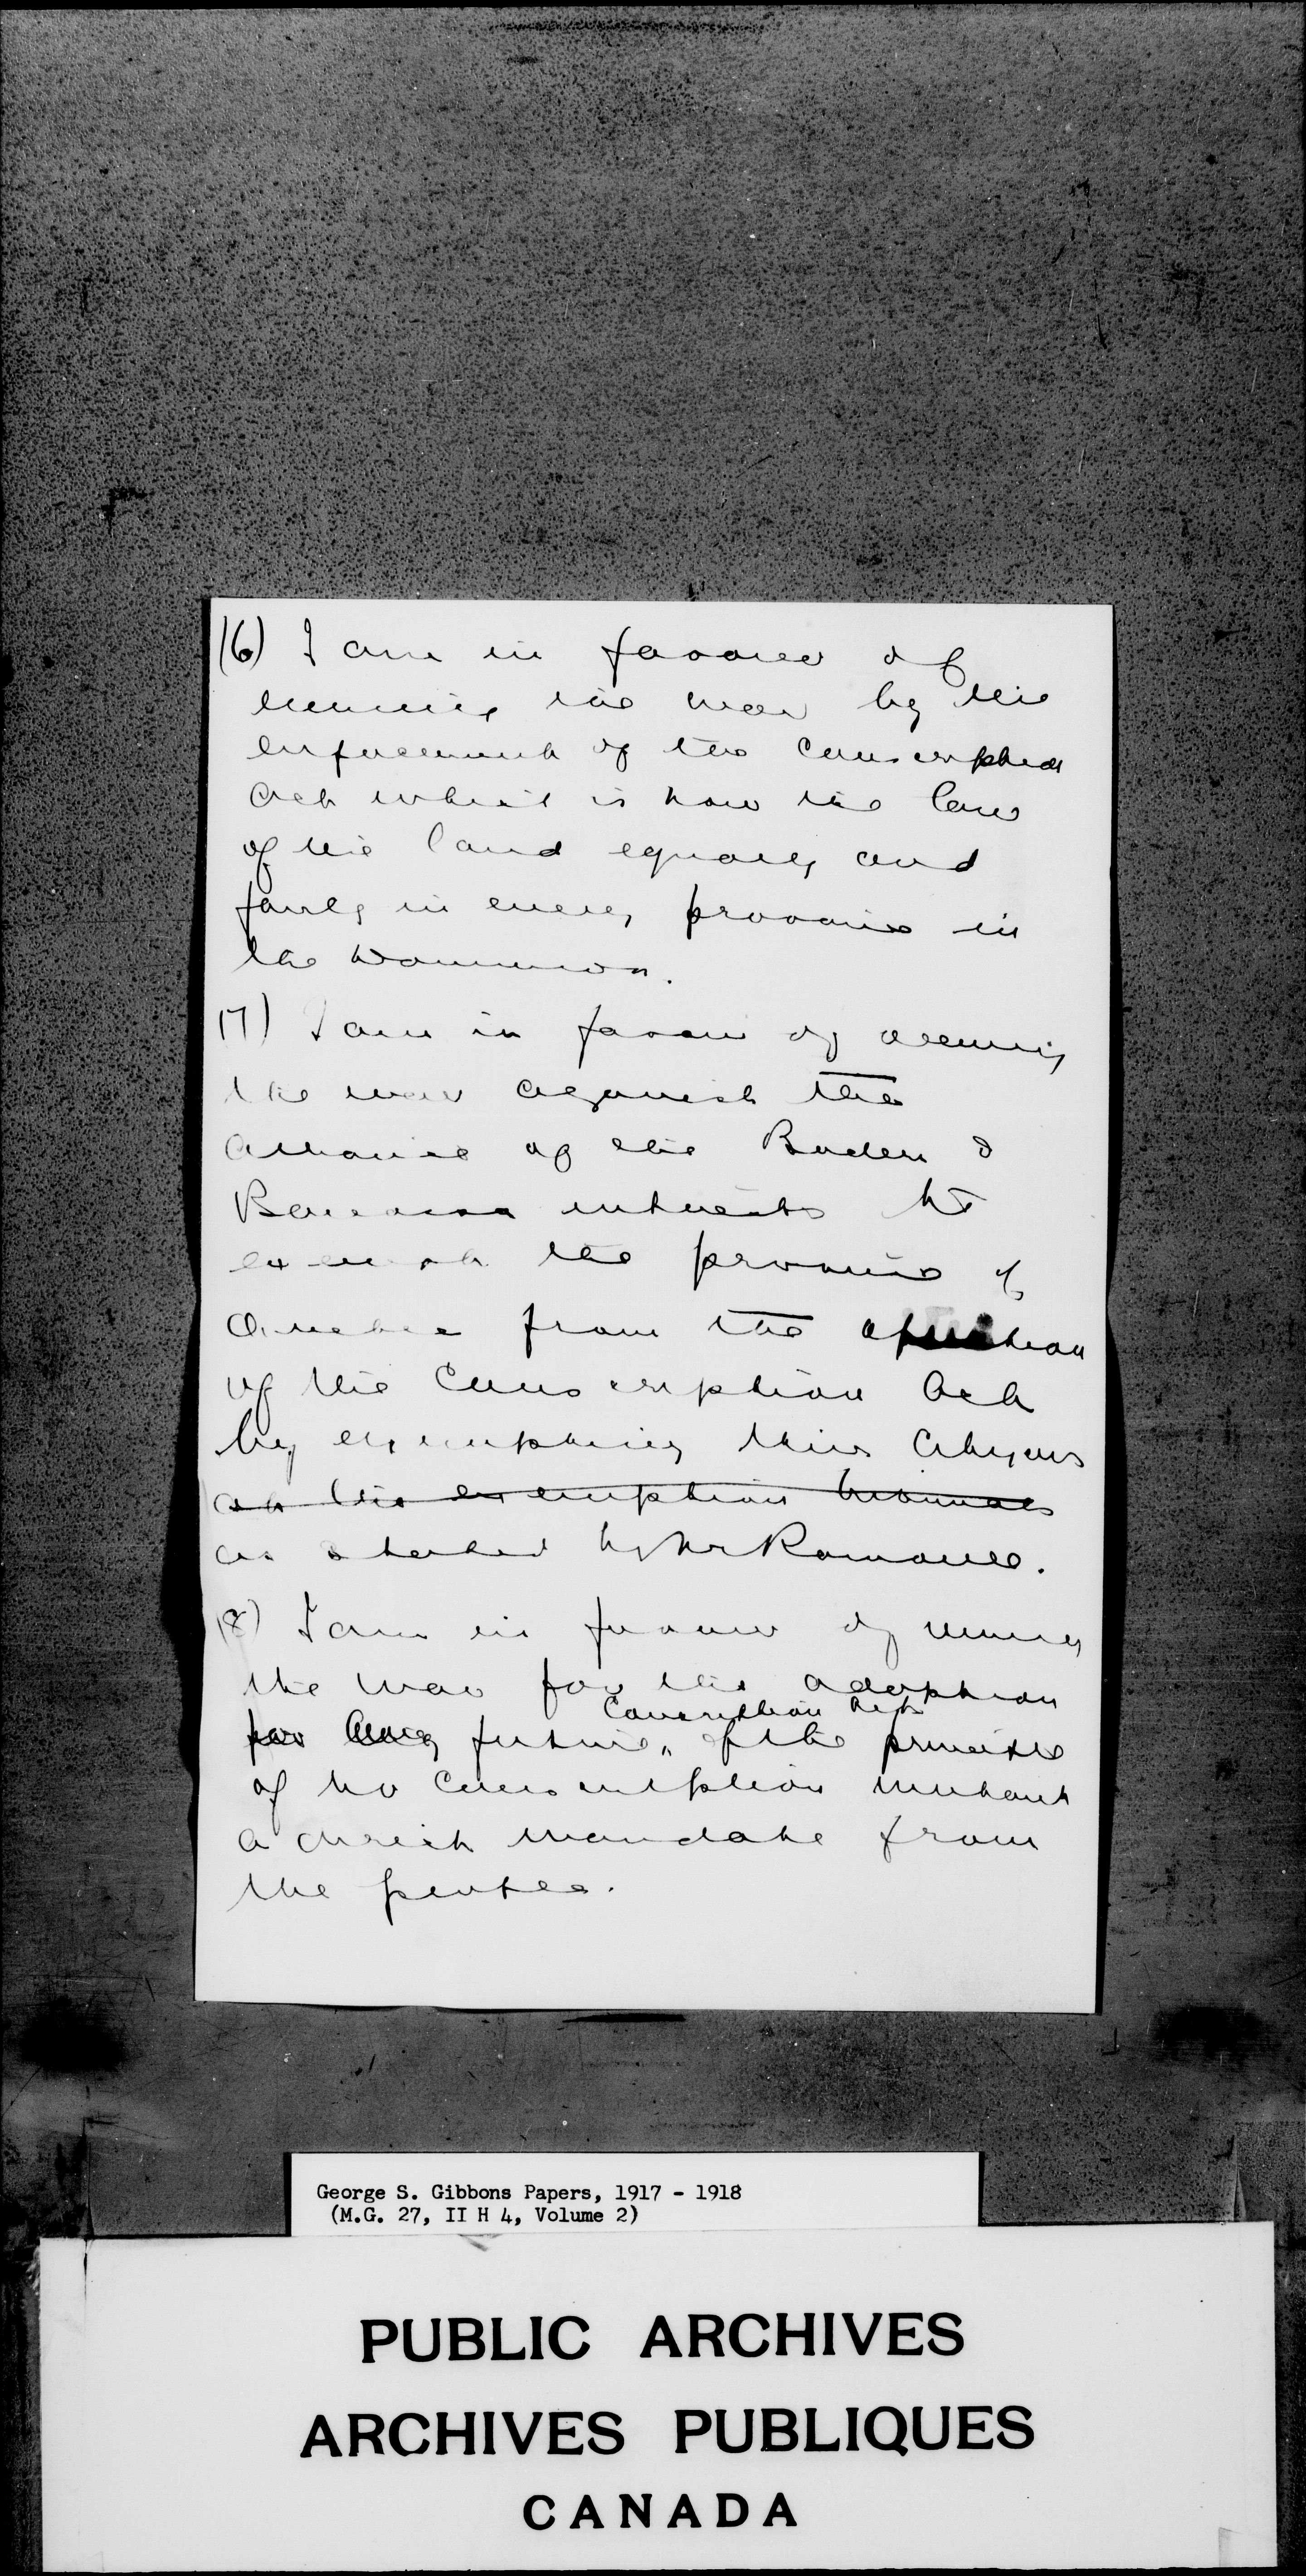 (6) I am in favour of
winning the war by the
enforcement of the Conscription
Act which is now the law
of the land equally and
fairly in every province in
the Dominion.
(7) I am in favour of winning
the war against the
alliance of the Borden &
Bourassa interests to
exempt the province of
Quebec from the operation
of the Conscription Act
by exempting their citizens
at the exemption tribunals
as stated by Mr
(8) I am in favour of winning
the war for the adoption
Conscription Acts
for future, of the principle
of no Conscription without
a direct mandate from
the people.
George S. Gibbons Papers, 1917 - 1918
(M.G. 27, II H 4, Volume 2)
PUBLIC ARCHIVES
ARCHIVES PUBLIQUES
CANADA